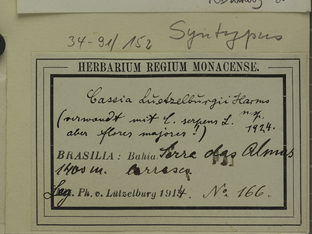 34-91/152 Syntypus
HERBARIUM REGIUM MONACENSE.
Cassia Luetzelburgii Harms
(verwandt mit C. serpens L. n. sp.
aber flores majores!) 1924.
BRASILIA: Bahia. Serra das Almas
1400 m. Carrasco
Leg. Ph. v. Lützelburg 1914. No. 166.